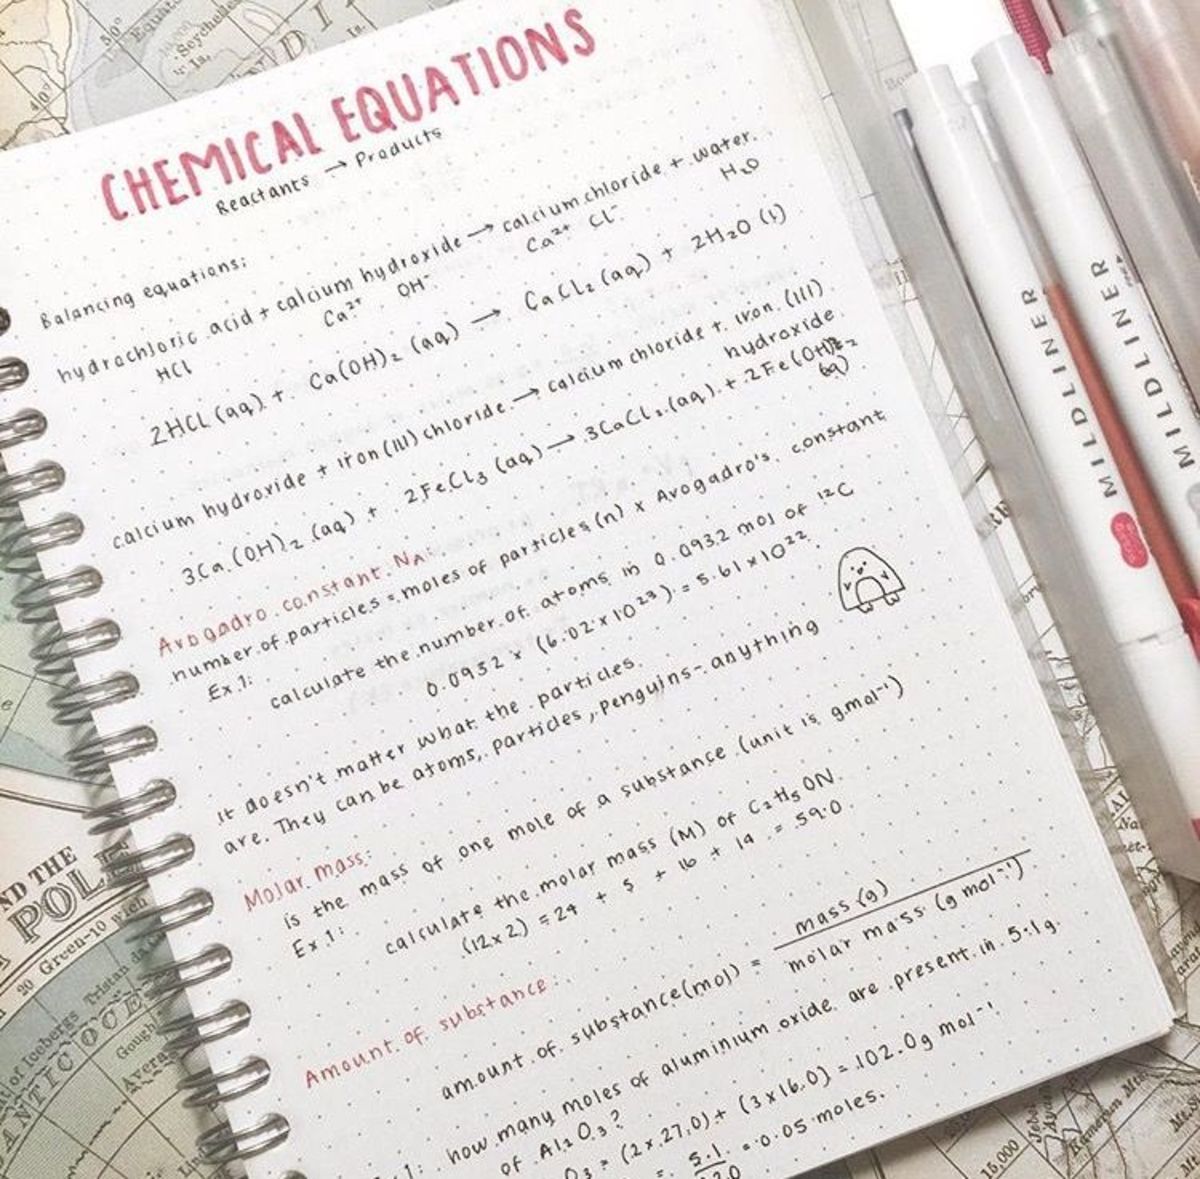 CHEMICAL EQUATIONS
Reactants → Products
Balancing equations:
hydrochloric acid + calcium hydroxide → calcium chloride + water.
HCl Ca²⁺ OH⁻ Ca²⁺ Cl⁻ H₂O
2HCL (aq) + Ca(OH)₂ (aq) → CaCl₂ (aq) + 2H₂O (l)
calcium hydroxide + iron (III) chloride → calcium chloride + iron (III)
hydroxide
3Ca(OH)₂ (aq) + 2FeCl₃ (aq) → 3CaCl₂ (aq) + 2Fe(OH)
Avogadro constant NA:
number of particles = moles of particles (n) x Avogadro's constant
Ex 1:
calculate the number of atoms in 0.0932 mol of ¹²C
0.0932 x (6.02 x 10²³) = 5.61 x 10²²
it doesn't matter what the particles
are. They can be atoms, particles, penguins - anything
Molar mass:
is the mass of one mole of a substance (unit is gmol⁻¹)
Ex 1:
calculate the molar mass (M) of C₂H₅ON.
(12x2) = 24 + 5 + 16 + 14 = 59.0.
Amount of substance:
amount of substance (mol) = mass (g)
molar mass (g mol⁻¹)
1: how many moles of aluminium oxide are present in 5.1g
of Al₂O₃?
O₃ = (2 x 27.0) + (3 x 16.0) = 102.0g mol⁻¹
= 5.1 = 0.05 moles.
2.0
MILDLINER
MILDLINER
50°
40°
Seychelles
Is.
ND THE
POLE
20 Green-10 wich
Tristan da
of Icebergs
NTIC OCE
Gough
Avera
15,000